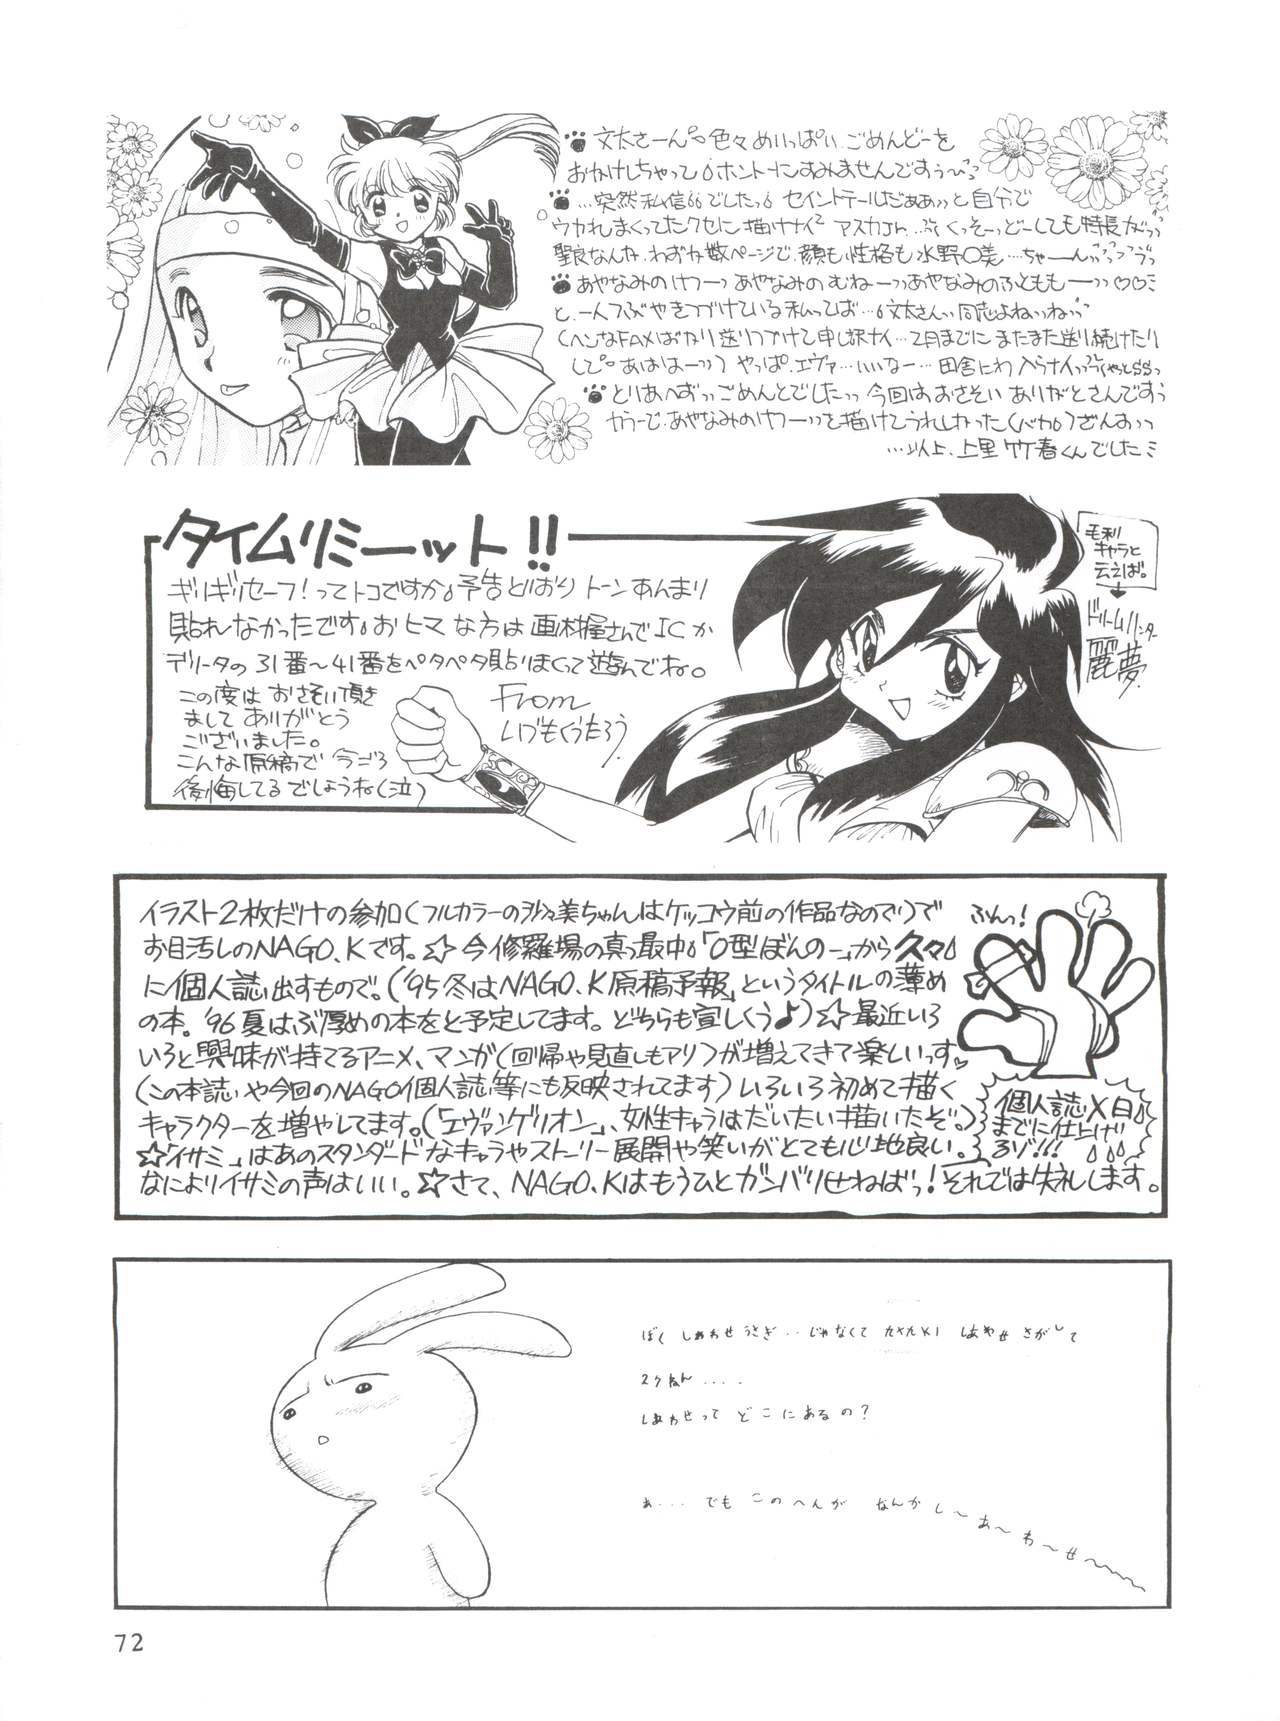 文太さーん 色々めいっぱい、ごめんどーを
おかけしちゃって ホントーにすみませんですぅ〜
…突然私信 でしたっ セイントテールだぁぁっと自分で
ウカれまくってたクセに描けナイ² アスカJr. …ぶくくっそーっどーしても特長がっっ
聖良なんか、わずか数ページで、顔も性格も水野〇美…ちゃーんっっっ
あやなみのけつーっっあやなみのむねーっっあやなみのふとももーっっ♡♡
と、一人つぶやきつづけている私ってば… 文太さんっ同志よねっねっっ
(ヘンなFAXばかり送りつけて申し訳ナイ…2月までにまたまた送り続けたり
して あはは〜っ) やっぱ、エヴァ…いいなー…田舎にわ入らナイっっ
とりあへずっっごめんとでしたっっ今回はおさそいありがとさんですぅ
あやなみのけつーっっを描けてうれしかった(バカ
…以上、上里竹春くんでした
タイムリミーット!!
ギリギリセーフ!ってトコですか。予告どおりトーンあんまり
貼れなかったです。おヒマな方は画材屋さんでICか
デリータの31番〜41番をペタペタ貼りまくって遊んでね。
この度はおさそい頂き
ましてありがとう
ございました。
こんな原稿で今ごろ
後悔してるでしょうね(泣)
From
いづもくうたろう
毛利
キャラと
云えば。
ドリームハンター
麗夢
イラスト2枚だけの参加(フルカラーの沙々美ちゃんはケッコウ前の作品なので!)で
お目汚しのNAGO.Kです。☆今修羅場の真っ最中。「O型ぼんのー」から久々
に個人誌出すもので。('95冬は「NAGO.K原稿予報」というタイトルの薄め
の本。'96夏はぶ厚めの本をと予定してます。どちらも宜しくぅ♪)☆最近いろ
いろと興味が持てるアニメ、マンガ(回帰や見直しもアリ)が増えてきて楽しいっす♥
(この本誌や今回のNAGO個人誌等にも反映されてます)いろいろ初めて描く
キャラクターを増やしてます。(「エヴァンゲリオン」、女性キャラはだいたい描いたぞ。)
☆「イサミ」はあのスタンダードなキャラやストーリー展開や笑いがとても心地良い。
なによりイサミの声はいい。☆さて、NAGO.Kはもうひとガンバリせねばっ!それでは失礼します。
ふんっ!
個人誌X日
までに仕上げ
るゾ!!!
ぼく しあわせうさぎ・・じゃなくて しあわせ さがして
27ねん ・・・・
しあわせって どこにあるの?
あ・・・ でも このへんが なんか し〜あ〜わ〜せ〜
72